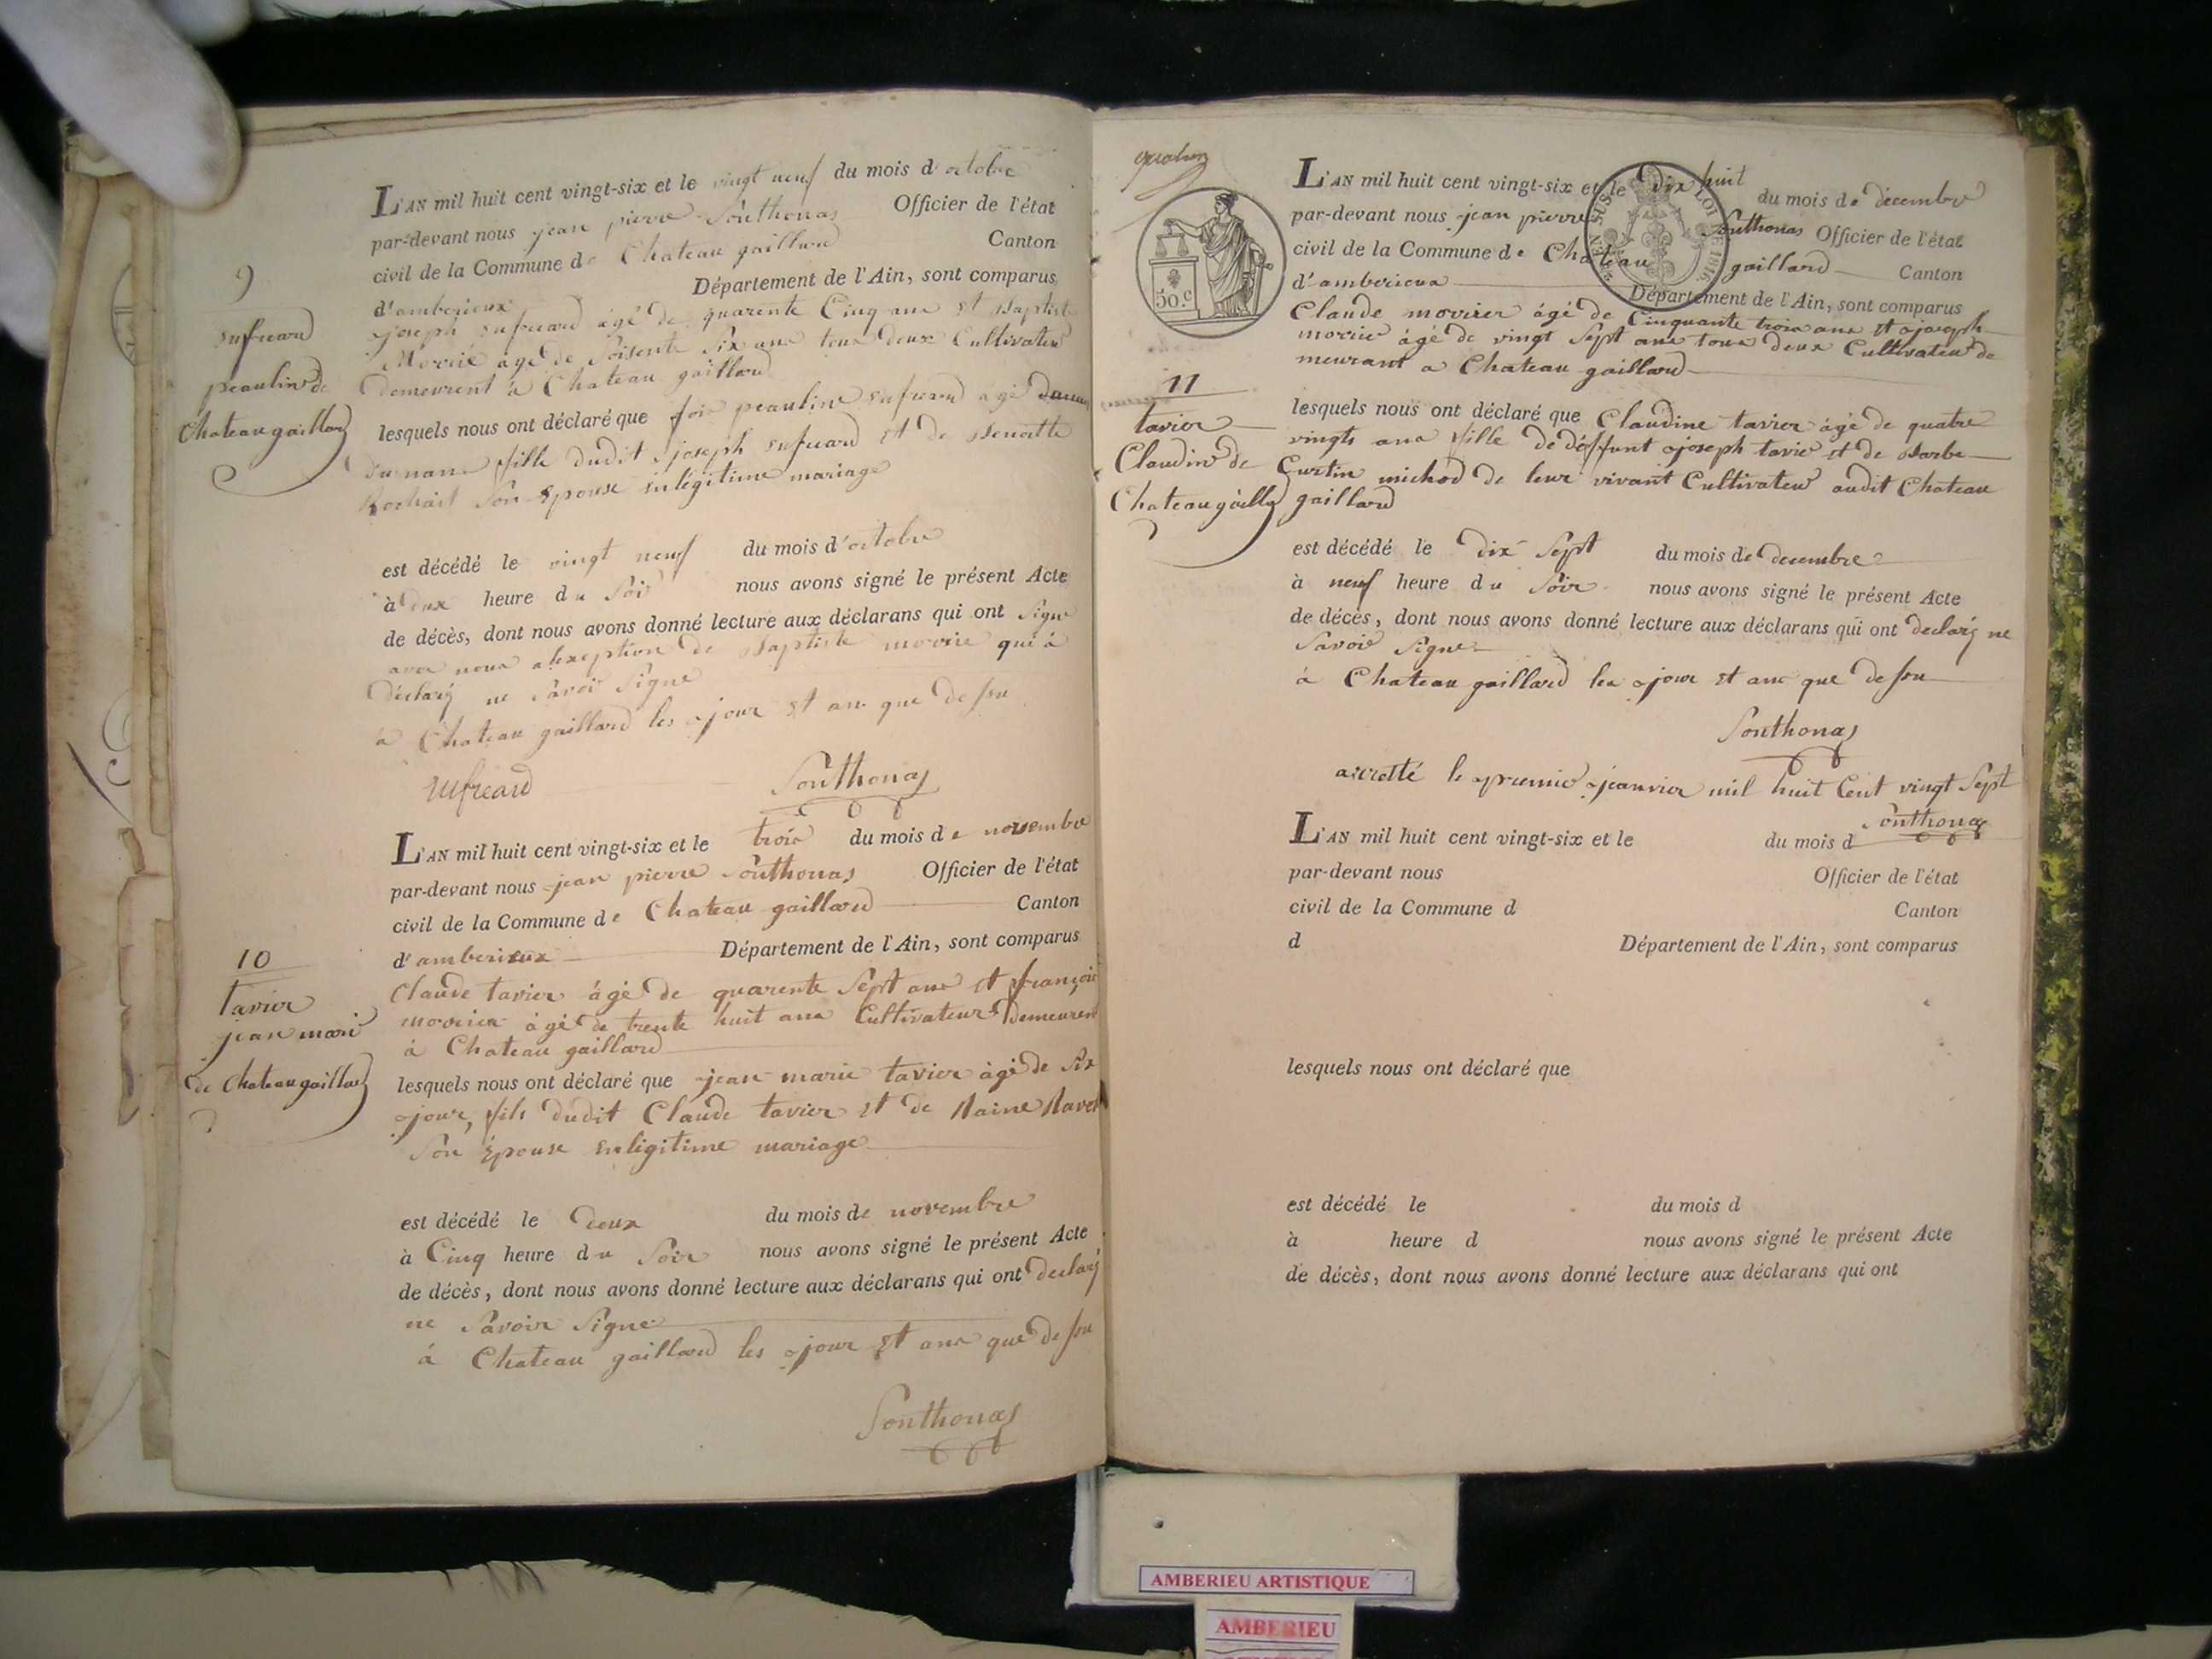 9
sufreard
peauline de
Chateaugaillard
L'AN mil huit cent vingt-six et le vingt neuf du mois d'octobre
par-devant nous jean pierre Ponthonas Officier de l'état
civil de la Commune de Chateau gaillard Canton
d'amberieux Département de l'Ain, sont comparus
joseph sufreard agé de quarente Cinq ans et Baptiste
age de soisente six ans tous deux Cultivateur
demeurent à Chateau gaillard
lesquels nous ont déclaré que peauline sufreard agé
fille dudit joseph sufreard et de Benoitte
Rochait son epouse en légitime mariage
est décédé le vingt neuf du mois d'octobre
à heure du soir nous avons signé le présent Acte
de décès, dont nous avons donné lecture aux déclarans qui ont signe
avec nous alexeption de Baptiste qui à
déclaré ne savoir signe
à Chateau gaillard les jour et an que dessu
sufreard Ponthonas
10
tavier
jean marie
de Chateaugaillard
L'AN mil huit cent vingt-six et le trois du mois de novembre
par-devant nous jean pierre Ponthonas Officier de l'état
civil de la Commune de Chateau gaillard Canton
d'amberieux Département de l'Ain, sont comparus
Claude tavier àgé de quarente sept ans et françois
morier àgé de trente huit ans Cultivateurs demeurent
à Chateau gaillard
lesquels nous ont déclaré que jean marie tavier àgé de six
jours, fils dudit Claude tavier et de
son épouse en légitime mariage
est décédé le deux du mois de novembre
à Cinq heure du soir nous avons signé le présent Acte
de décès, dont nous avons donné lecture aux déclarans qui ont declaré
ne savoir signe
à Chateau gaillard les jour et ans que dessu
Ponthonas
50.c
EN SUS LOI DE 1816
11
tavier
Claudine de
Chateaugaillard
L'AN mil huit cent vingt-six et le dix huit du mois de decembre
par-devant nous jean pierre Ponthonas Officier de l'état
civil de la Commune de Chateau gaillard Canton
d'amberieux Département de l'Ain, sont comparus
Claude àgé de Cinquante trois ans et joseph
àgé de vingt sept ans tous deux Cultivateur de
meurant a Chateau gaillard
lesquels nous ont déclaré que Claudine tavier àgé de quatre
vingts ans fille de deffunt joseph tavié et de Barbe
Curtin michod de leur vivant Cultivateur audit Chateau
gaillard
est décédé le dix sept du mois de decembre
à neuf heure du soir nous avons signé le présent Acte
de décès, dont nous avons donné lecture aux déclarans qui ont declaré ne
savoir signe
à Chateau gaillard les jour et ans que dessu
Ponthonas
arretté le premier jeanvier mil huit Cent vingt sept
Ponthonas
L'AN mil huit cent vingt-six et le du mois d
par-devant nous Officier de l'état
civil de la Commune d Canton
d Département de l'Ain, sont comparus
lesquels nous ont déclaré que
est décédé le du mois d
à heure d nous avons signé le présent Acte
de décès, dont nous avons donné lecture aux déclarans qui ont
AMBERIEU ARTISTIQUE
AMBERIEU